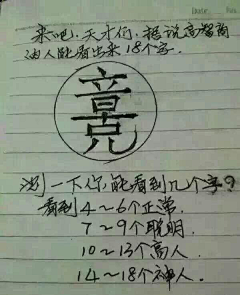 来吧，天才们，据说高智商
的人能看出来18个字．
竟
测一下你，能看到几个字？
看到4~6个正常．
7~9个聪明
10~13个高人．
14~18个神人．